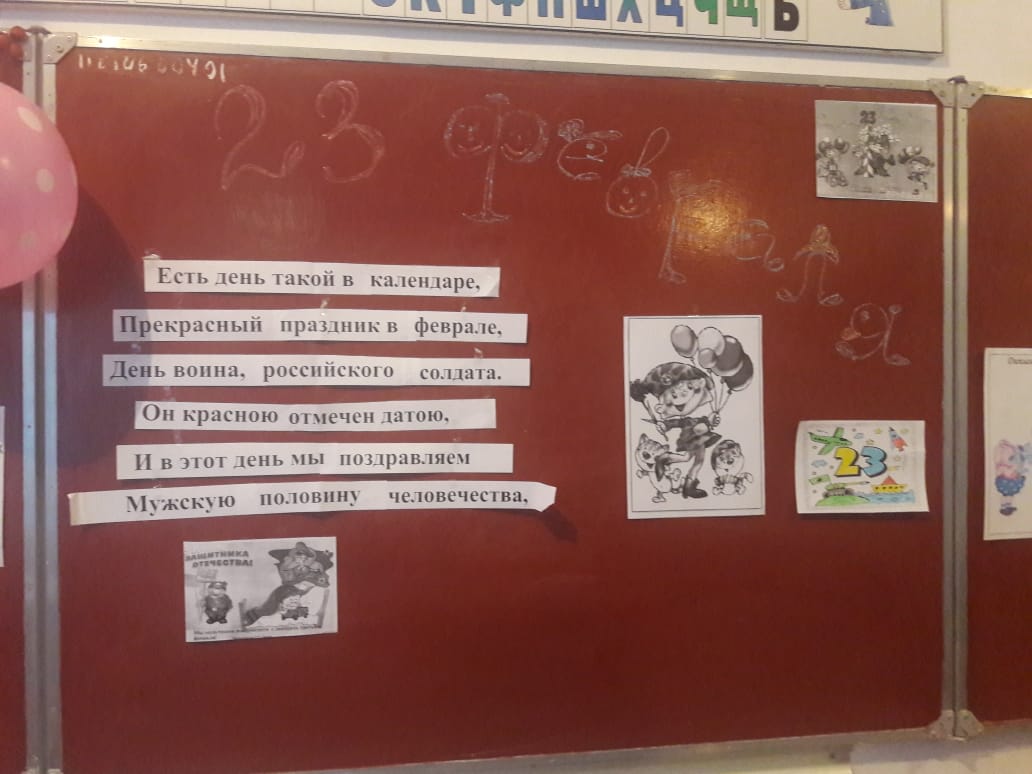 Ф П Ш Х Ц Ч Щ Ь
23 Февраля
23
Есть день такой в календаре,
Прекрасный праздник в феврале,
День воина, российского солдата.
Он красною отмечен датою,
И в этот день мы поздравляем
Мужскую половину человечества,
23
ЗАЩИТНИКА
ОТЕЧЕСТВА!